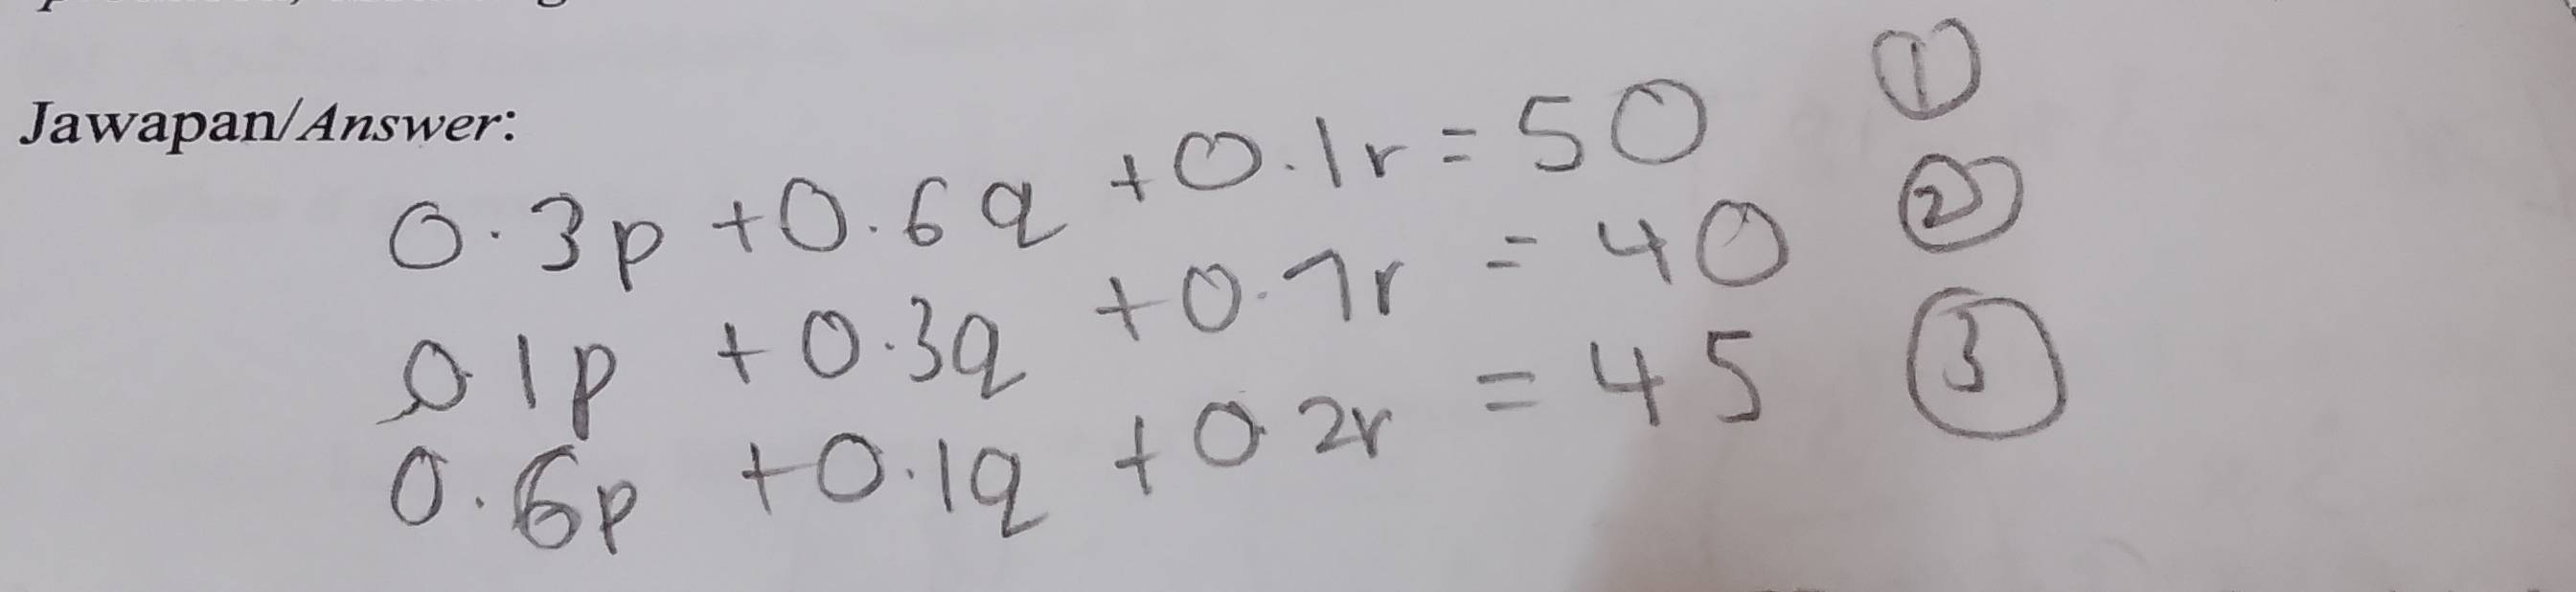 Jawapan/Answer:
0.3p + 0.6q + 0.1r = 50 ①
0.1p + 0.3q + 0.7r = 40 ②
0.6p + 0.1q + 0.2r = 45 ③